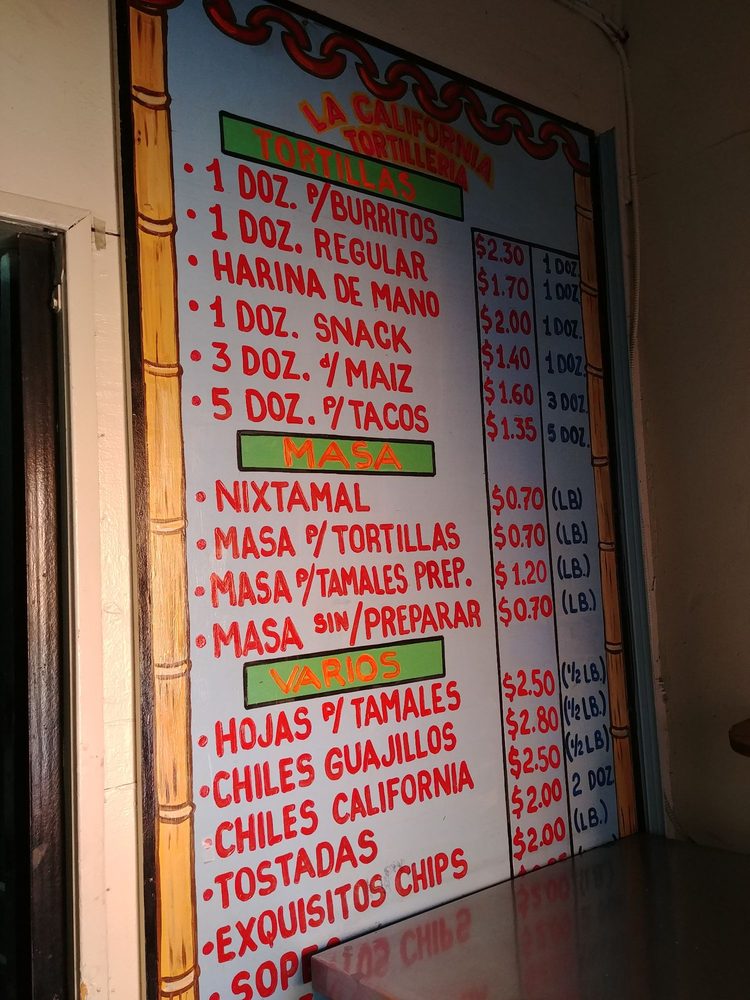 LA CALIFORNIA
TORTILLERIA
TORTILLAS
• 1 DOZ. P/BURRITOS $2.30 1 DOZ.
• 1 DOZ. REGULAR $1.70 1 DOZ.
• HARINA DE MANO $2.00 1 DOZ.
• 1 DOZ. SNACK $1.40 1 DOZ.
• 3 DOZ. d/MAIZ $1.60 3 DOZ.
• 5 DOZ. P/TACOS $1.35 5 DOZ.
MASA
• NIXTAMAL $0.70 (LB)
• MASA P/TORTILLAS $0.70 (LB.)
• MASA P/TAMALES PREP. $1.20 (LB.)
• MASA SIN/PREPARAR $0.70 (LB.)
VARIOS
• HOJAS P/TAMALES $2.50 (1/2 LB.)
• CHILES GUAJILLOS $2.80 (1/2 LB.)
• CHILES CALIFORNIA $2.50 (1/2 LB)
• TOSTADAS $2.00 2 DOZ
• EXQUISITOS CHIPS $2.00 (LB.)